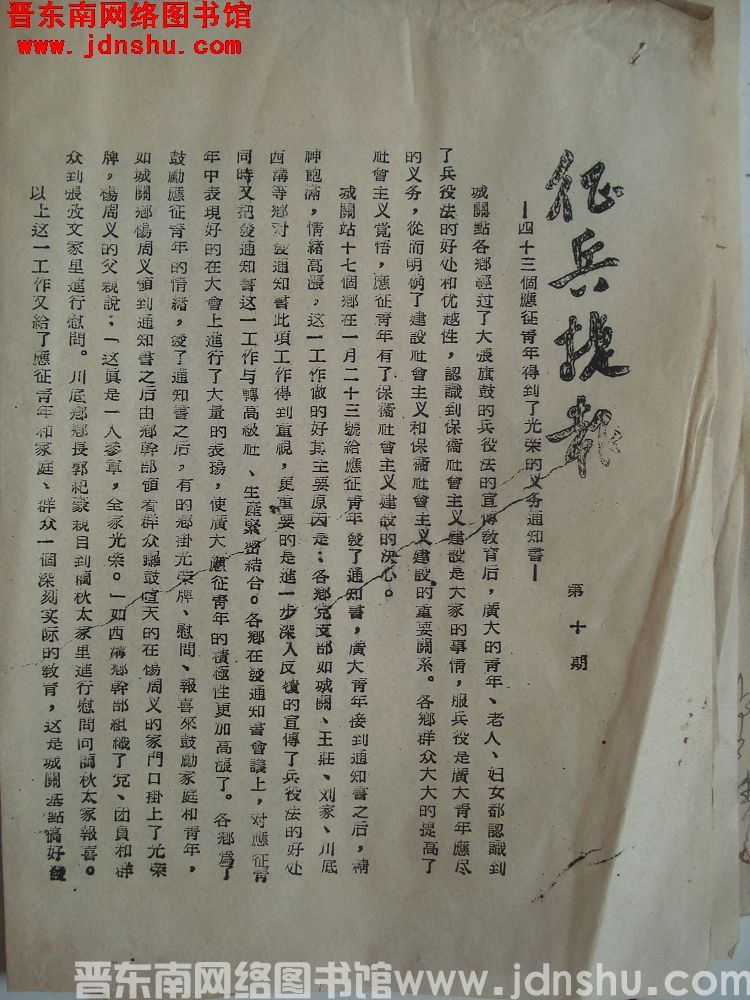 晋东南网络图书馆
www.jdnshu.com
征兵捷报
—四十三個應征青年得到了光荣的义务通知書—
第十期
城關點各鄉經过了大張旗鼓的兵役法的宣傳敎育后，廣大的青年、老人、妇女都認識到
了兵役法的好处和优越性，認識到保衞社會主义建設是大家的事情，服兵役是廣大青年應尽
的义务，從而明确了建設社會主义和保衞社會主义建設的重要關系。各鄉群众大大的提高了
社會主义覚悟，應征青年有了保衞社會主义建設的決心。
城關站十七個鄉在一月二十三號給應征青年發了通知書，廣大青年接到通知書之后，精
神飽滿，情緒高漲，这一工作做的好其主要原因是：各鄉党支部如城關、王莊、刘家、川底
西溝等鄉对發通知書此項工作得到重視，更重要的是進一步深入反復的宣傳了兵役法的好处
同時又把發通知書这一工作与轉高級社、生產緊密結合。各鄉在發通知書會議上，对應征青
年中表現好的在大會上進行了大量的表揚，使廣大應征青年的積極性更加高漲了。各鄉為了
鼓勵應征青年的情緒，發了通知書之后，有的鄉掛光荣牌、慰問、報喜來鼓勵家庭和青年，
如城關鄉楊周义領到通知書之后由鄉幹部領着群众鑼鼓喧天的在楊周义的家門口掛上了光荣
牌，楊周义的父親說：「这眞是一人參軍，全家光荣。」如西溝鄉幹部組織了党、团員和群
众到張攷文家里進行慰問。川底鄉鄉長郭杞豪親自到閻秋太家里進行慰問向閻秋太家報喜。
以上这一工作又給了應征青年和家庭、群众一個深刻实际的敎育，这是城關基點搞好發
晋东南网络图书馆www.jdnshu.com